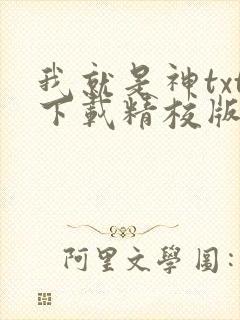 我就是神txt
下載精校版
阿里文學圖: